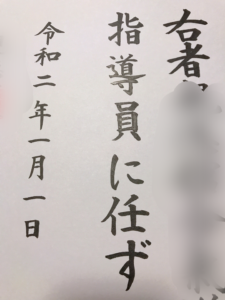 右者
指導員に任ず
令和二年一月一日